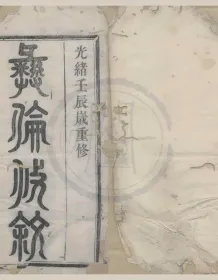 光緒壬辰歲重修
彝倫攸敘